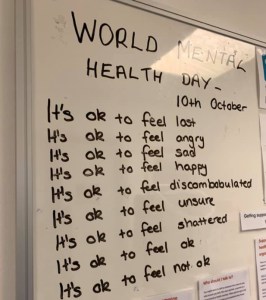 WORLD MENTAL
HEALTH DAY -
10th October
It's ok to feel lost
It's ok to feel angry
It's ok to feel sad
It's ok to feel happy
It's ok to feel discombobulated
It's ok to feel unsure
It's ok to feel shattered
It's ok to feel ok
It's ok to feel not ok